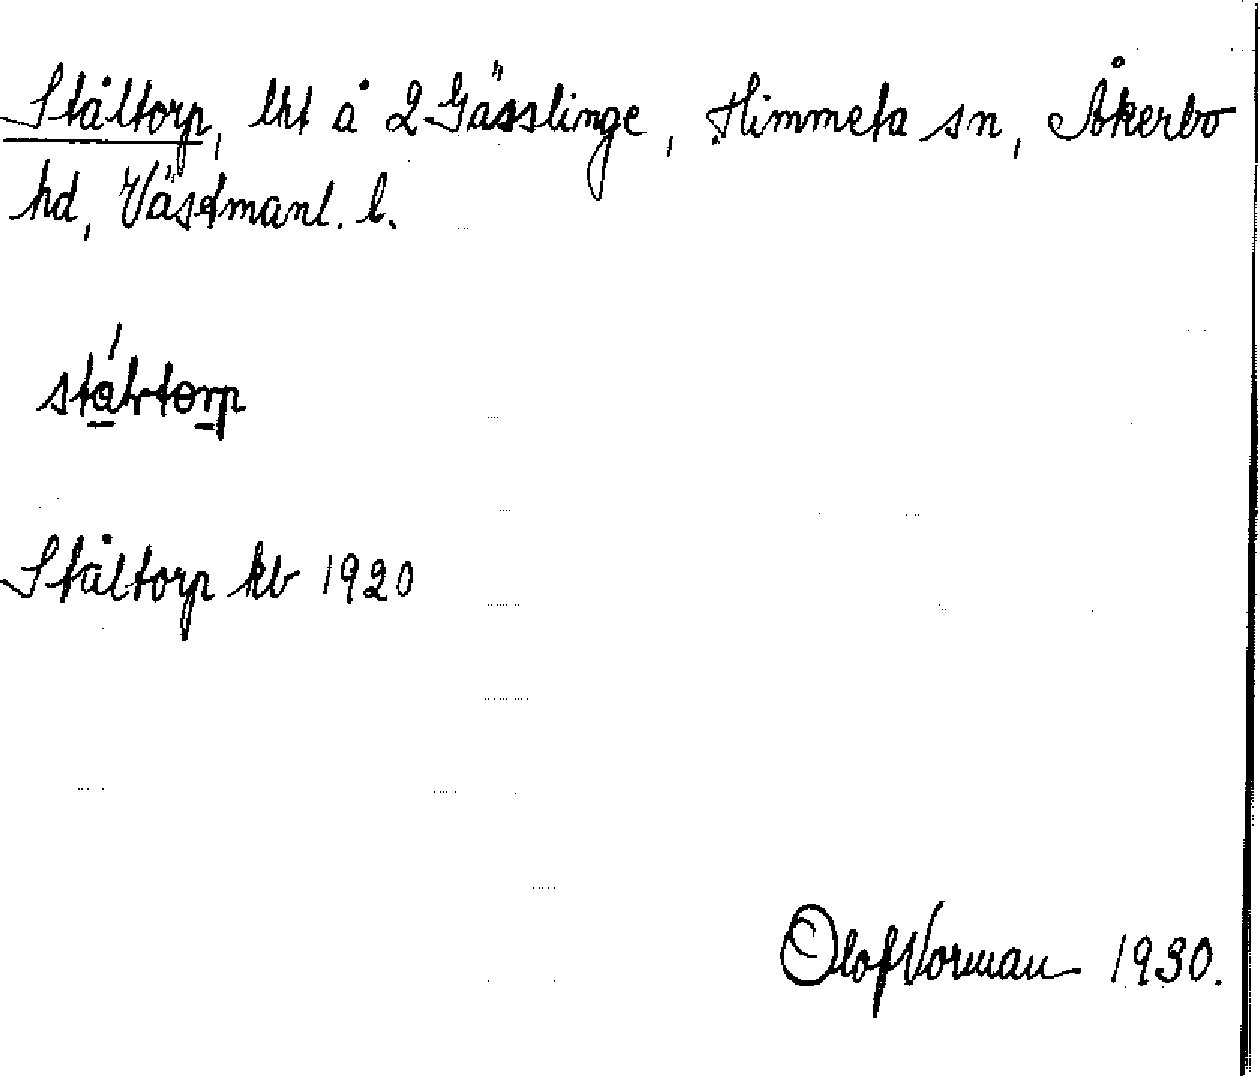 Ståltorp, lht å 2 Gässlinge, Himmeta sn, Åkerbo
hd, Västmanl. l.
Ståltorp kb 1920
Olof Norman 1930.